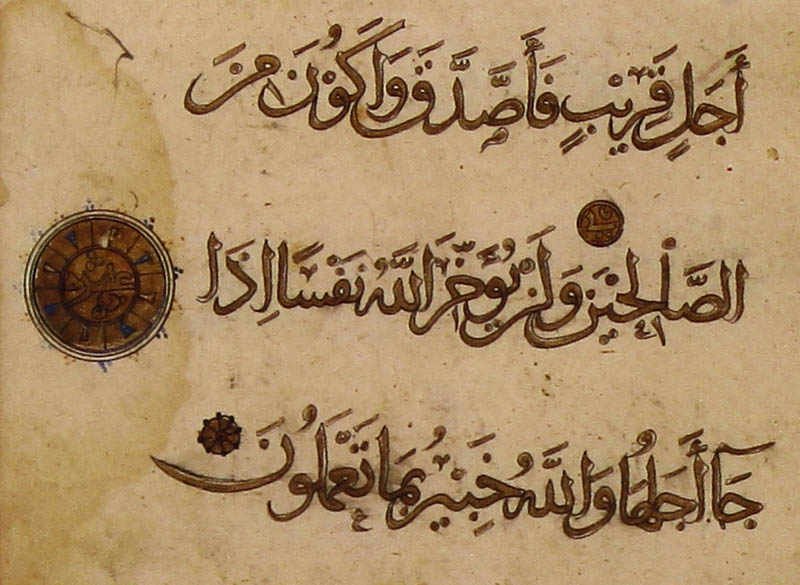 أَجَلٍ قَرِيبٍ فَأَصَّدَّقَ وَأَكُوْنَ مِنَ
الصَّالِحِيْنَ وَلَنْ يُؤَخِّرَ اللَّهُ نَفْسًا اِذَا
جَآ أَجَلُهَا وَاللَّهُ خَبِيْرٌ بِمَا تَعْمَلُونَ